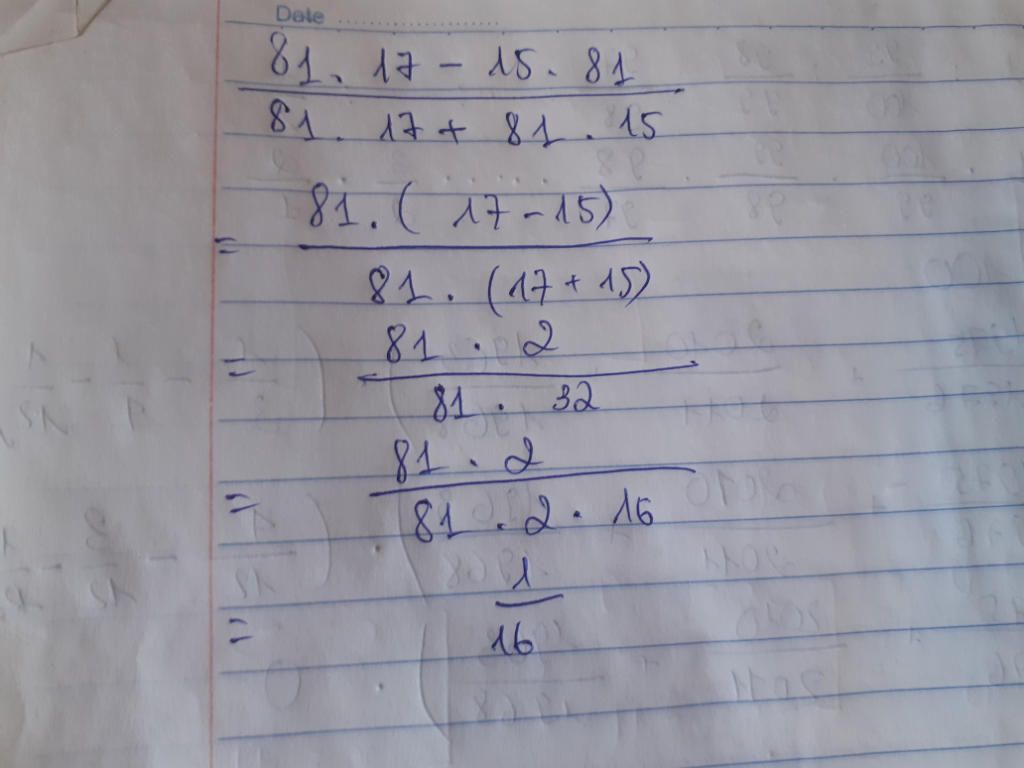 Date ........................
81 . 17 - 15 . 81
81 . 17 + 81 . 15
= 81 . ( 17 - 15)
81 . (17 + 15)
= 81 . 2
81 . 32
= 81 . 2
81 . 2 . 16
= 1
16